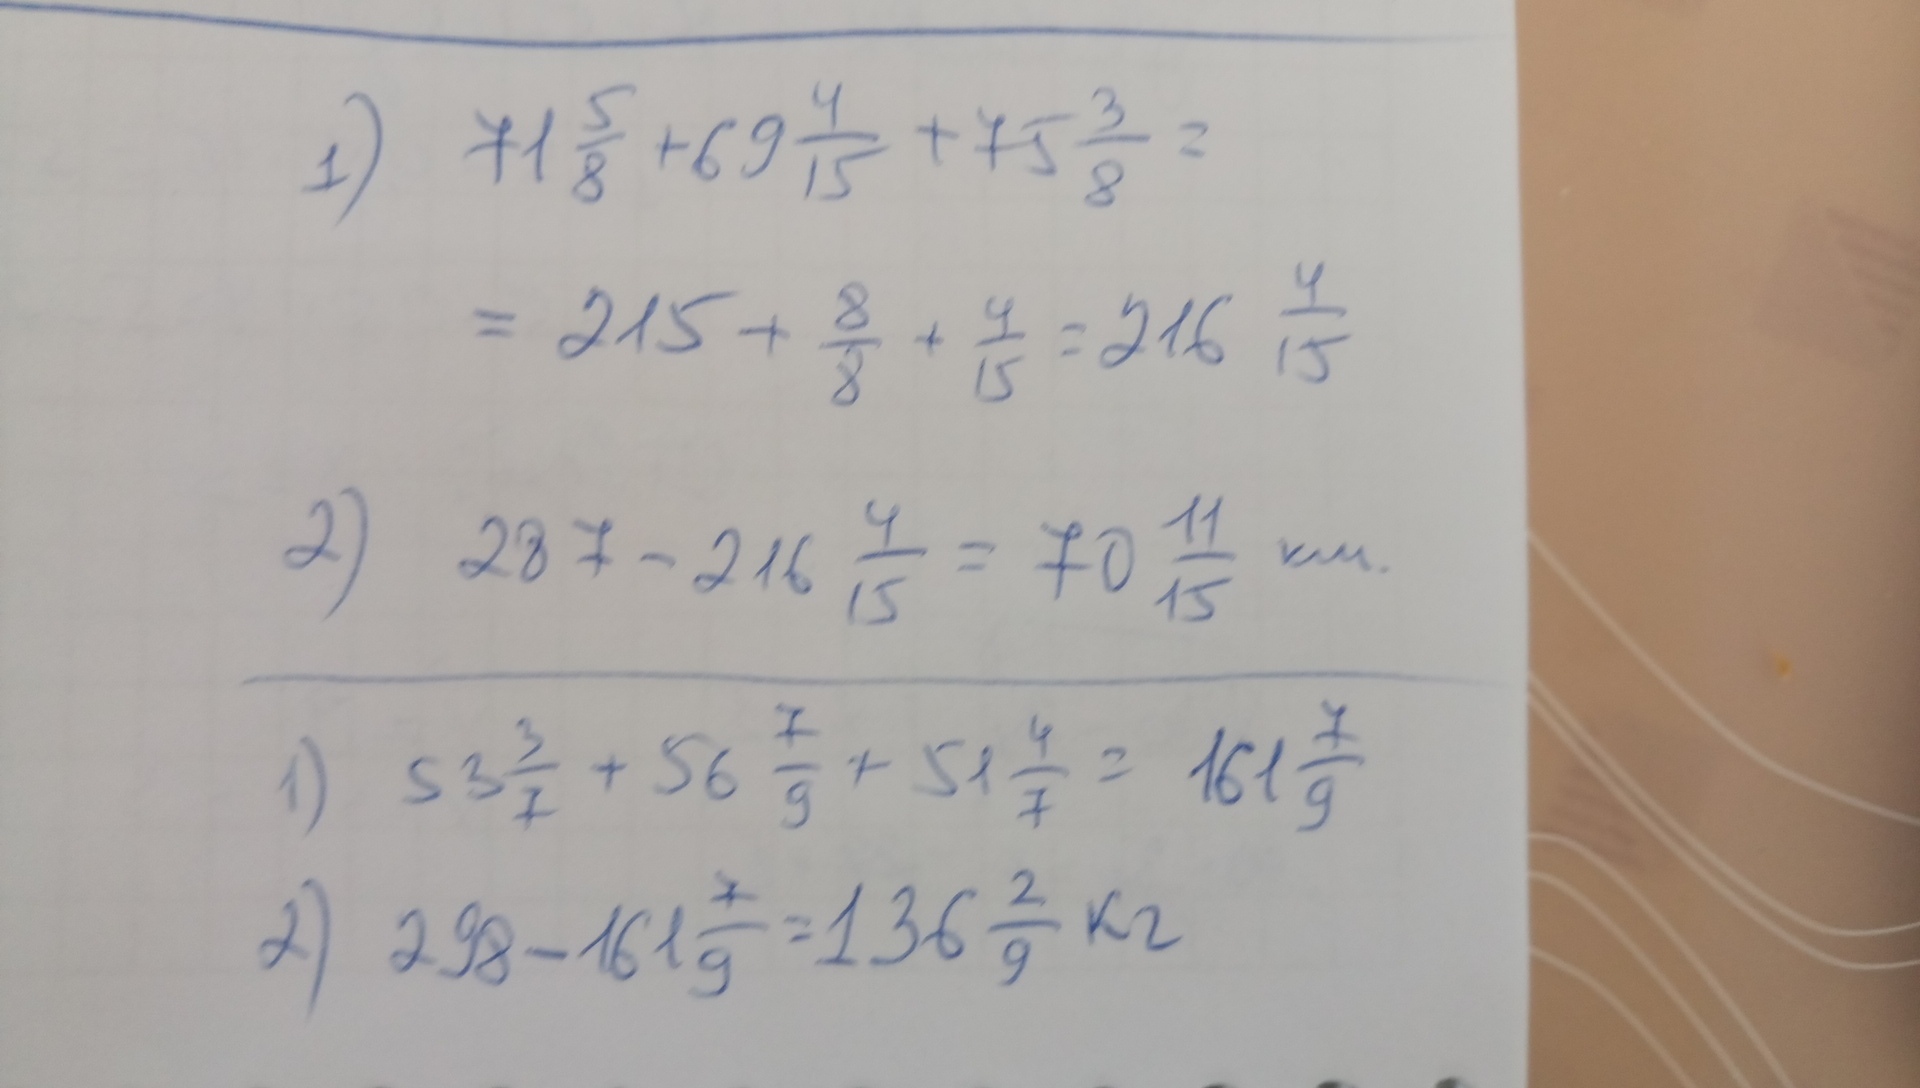 1) 71 5/8 + 69 4/15 + 75 3/8 =
= 215 + 8/8 + 4/15 = 216 4/15
2) 287 - 216 4/15 = 70 11/15 км.
1) 53 3/7 + 56 7/9 + 51 4/7 = 161 7/9
2) 298 - 161 7/9 = 136 2/9 кг